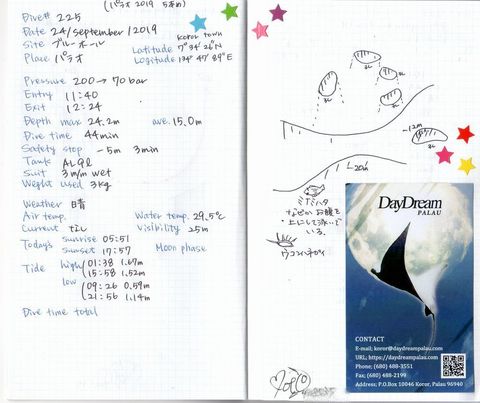 (パラオ 2019 5本め)
Dive# 225
Date 24/september/2019
Site ブルーホール
Place パラオ
Koror town
Latitude 7°34′26″N
Logitude 134°47′89″E
Pressure 200→70bar
Entry 11:40
Exit 12:24
Depth max 24.2m ave. 15.0m
Dive time 44min
Safety stop -5m 3min
Tank AL9l
Suit 3m/m wet
Weight used 3kg
Weather 晴
Air temp. Water temp. 29.5℃
Current なし Visibility 25m
Today's sunrise 05:51 Moon phase
sunset 17:57
Tide high 01:38 1.67m
15:58 1.52m
low 09:26 0.59m
21:56 1.14m
Dive time total
-12m
-20m
なぜかお腹を
上にして泳いで
いる。
DayDream
PALAU
CONTACT
E-mail; koror@daydreampalau.com
URL; https://daydreampalau.com
Phone; (680) 488-3551
Fax; (680) 488-2199
Address; P.O.Box 10046 Koror, Palau 96940